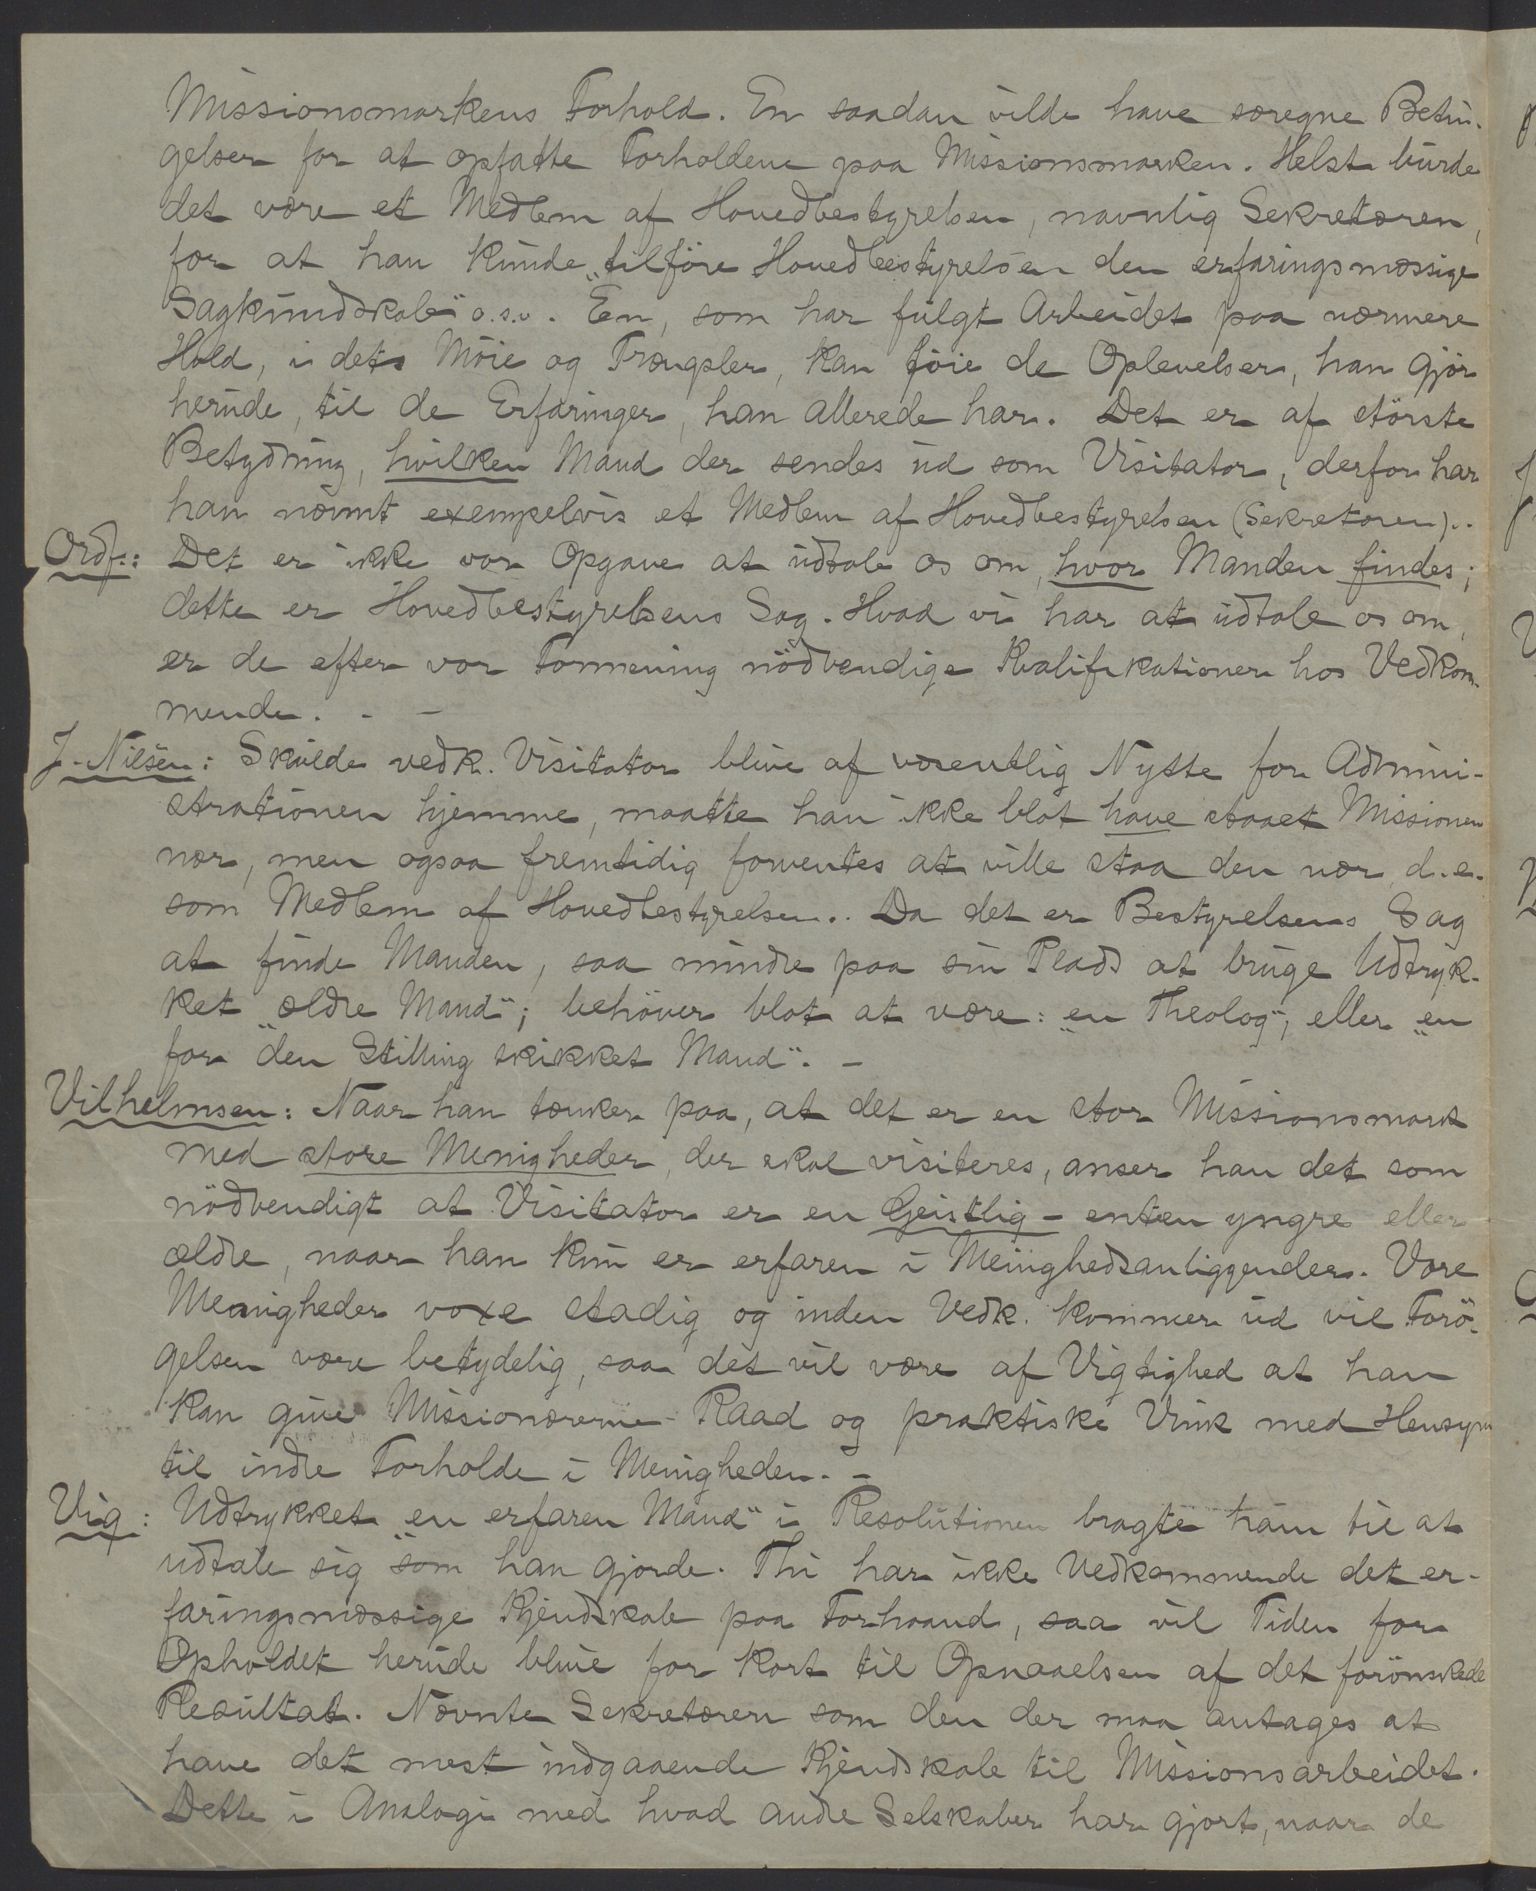 Missionsmarkens Forhold. En saadan vilde have særegne Betin-
gelser for at opfatte Forholdene paa Missionsmarken. Helst burde
det være et Medlem af Hovedbestyrelsen, navnlig Sekretæren,
for at han kunde „tilføre Hovedbestyrelsen den erfaringsmæssige
Sagkundskab“ o.s.v. En, som har fulgt Arbeidet paa nærmere
Hold, i dets Møie og Trængsler, kan føie de Oplevelser, han gjør
herude, til de Erfaringer, han allerede har. Det er af største
Betydning, hvilken Mand der sendes ud som Visitator, derfor har
han nævnt exempelvis et Medlem af Hovedbestyrelsen (Sekretæren)..
Ordf.: Det er ikke vor Opgave at udtale os om, hvor Manden findes;
dette er Hovedbestyrelsens Sag. Hvad vi har at udtale os om,
er de efter vor Formening nödvendige Kvalifikationer hos Vedkom-
mende. - -
J. Nilsen: Skulde vedk. Visitator blive af væsentlig Nytte for Admini-
strationen hjemme, maatte han ikke blot have staaet Missionen
nær, men ogsaa fremtidig forventes at ville staa den nær, d.e.
som Medlem af Hovedbestyrelsen.. Da det er Bestyrelsens Sag
at finde Manden, saa mindre paa sin Plads at bruge Udtryk-
ket „ældre Mand“; behöver blot at være: „en Theolog“, eller „en
for den Stilling skikket Mand“. -
Vilhelmsen: Naar han tænker paa, at det er en stor Missionsmark
med store Menigheder, der skal visiteres, anser han det som
nödvendigt at Visitator er en Geistlig - enten yngre eller
ældre, naar han kun er erfaren i Menighedsanliggender. Vore
Menigheder voxe stadig og inden Vedk. kommer ud vil Forö-
gelsen være betydelig, saa det vil være af Vigtighed at han
kan give Missionærerne Raad og praktiske Vink med Hensyn
til indre Forholde i Menigheden. -
Vig: Udtrykket „en erfaren Mand“ i Resolutionen bragte ham til at
udtale sig som han gjorde. Thi har ikke Vedkommende det er-
faringsmæssige Kjendskab paa Forhaand, saa vil Tiden for
Opholdet herude blive for kort til Opnaaelsen af det forönskede
Resultat. Nævnte Sekretæren som den der maa antages at
have det mest indgaaende Kjendskab til Missionsarbeidet.
Dette i Analogi med hvad andre Selskaber har gjort, naar de